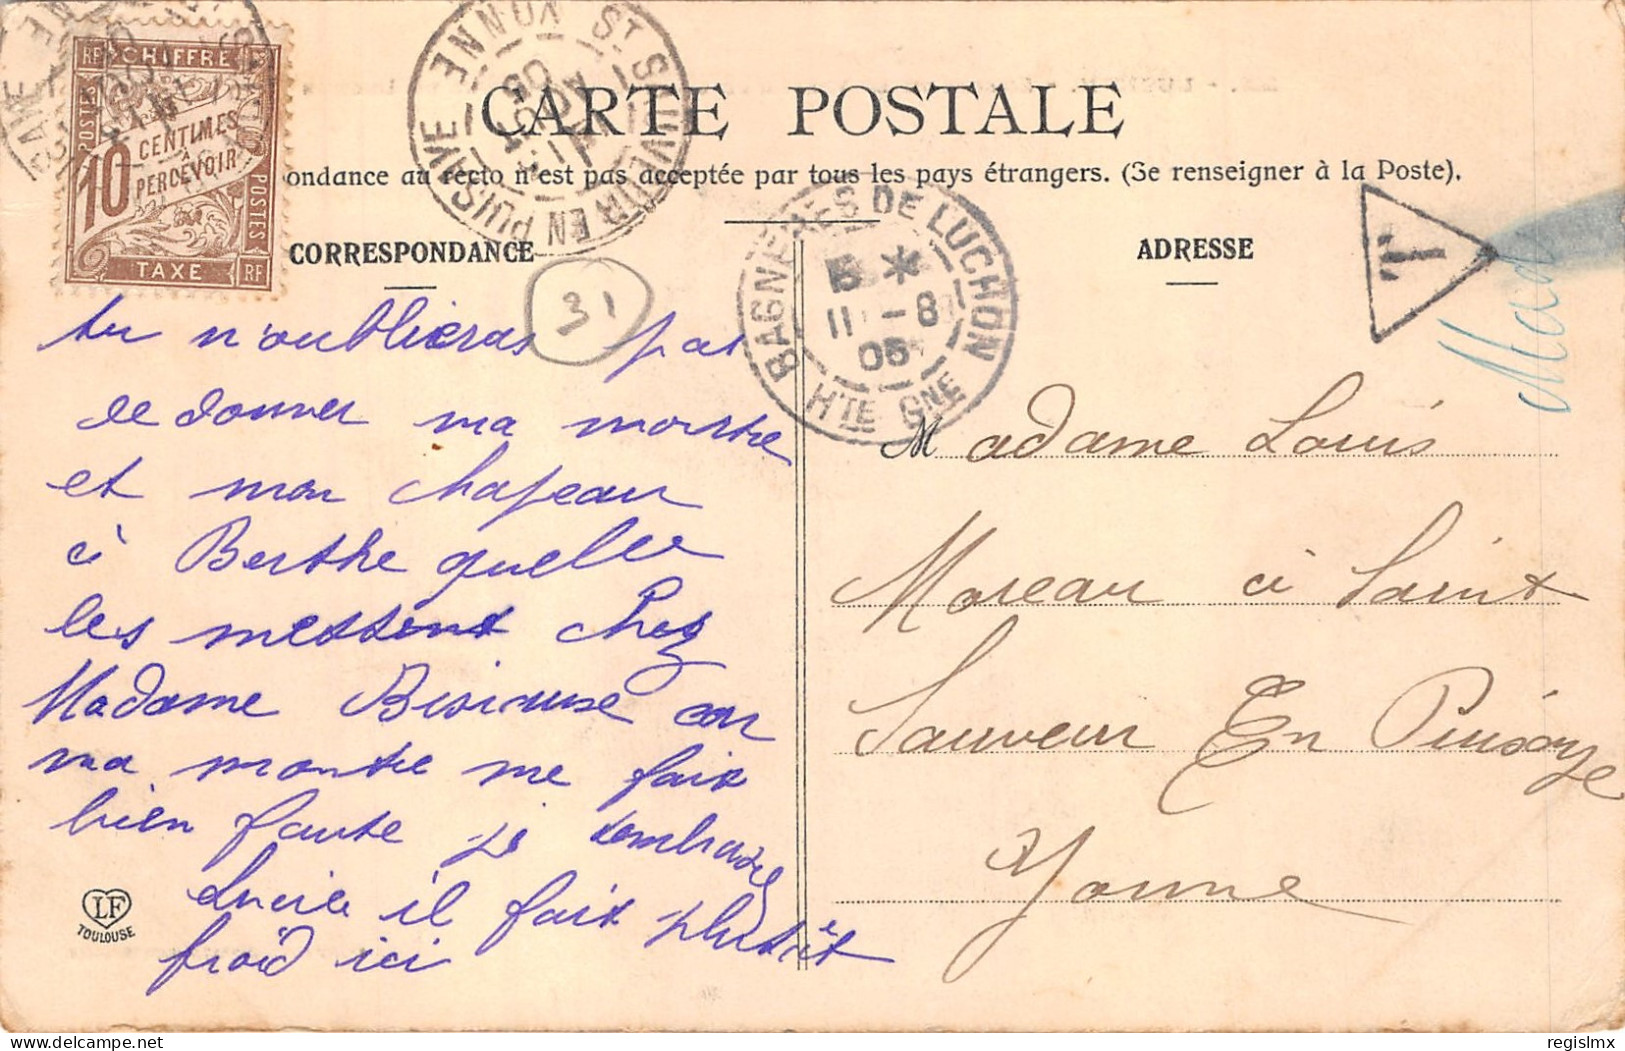 RF CHIFFRE
POSTES
10 CENTIMES
À
PERCEVOIR
POSTES
TAXE RF
ST SAUVEUR EN PUISAYE
YONNE
AOUT
05
CARTE POSTALE
ondance au recto n'est pas acceptée par tous les pays étrangers. (Se renseigner à la Poste).
CORRESPONDANCE
31
tu n'oublieras pas
de donner ma montre
et mon chapeau
à Berthe quelle
les mettent chez
Madame car
ma montre me fait
bien faute je tembrasse
Lucie il fait plutôt
froid ici
LF
TOULOUSE
BAGNERES DE LUCHON
5 *
11 -8
05
HTE GNE
ADRESSE
T
Mad
Madame Louis
Moreau à Saint
Sauveur En Puisaye
Yonne
regislmx